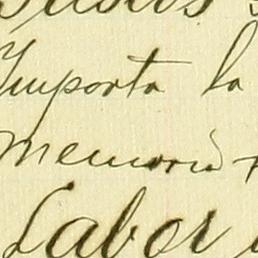 Importa la
memoria
Labor